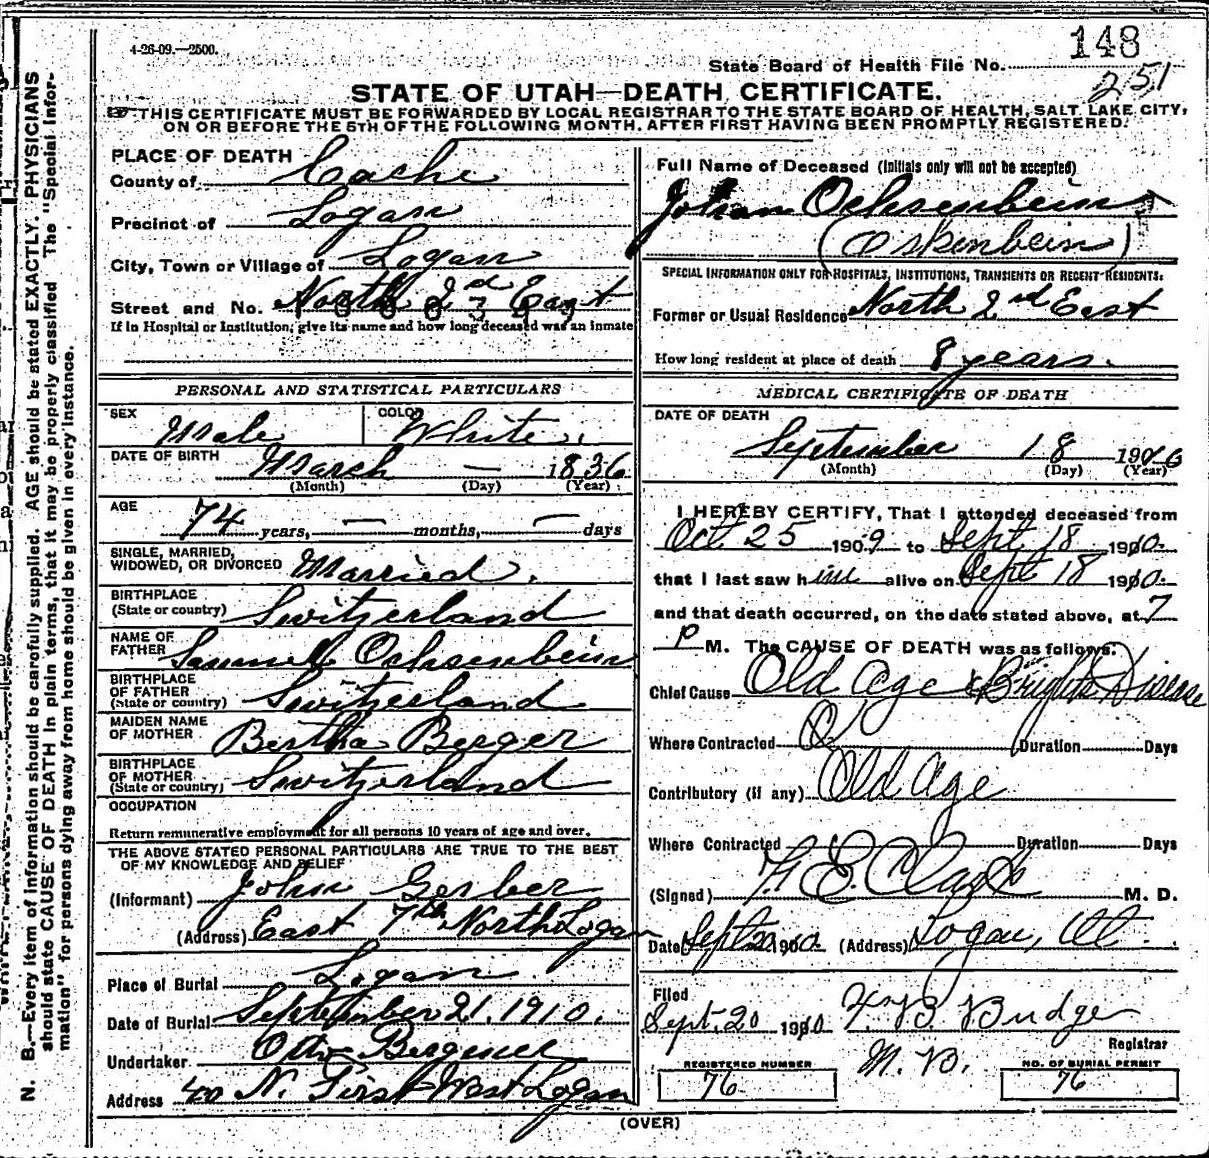 4-26-09.—2500.
148
State Board of Health File No.
251
STATE OF UTAH—DEATH CERTIFICATE.
THIS CERTIFICATE MUST BE FORWARDED BY LOCAL REGISTRAR TO THE STATE BOARD OF HEALTH, SALT LAKE CITY,
ON OR BEFORE THE 5TH OF THE FOLLOWING MONTH, AFTER FIRST HAVING BEEN PROMPTLY REGISTERED.
N. B.—Every item of information should be carefully supplied. AGE should be stated EXACTLY. PHYSICIANS
should state CAUSE OF DEATH in plain terms, that it may be properly classified. The "Special Infor-
mation" for persons dying away from home should be given in every instance.
PLACE OF DEATH
County of Cache
Precinct of Logan
City, Town or Village of Logan
Street and No. North 2nd East
If in Hospital or Institution, give its name and how long deceased was an inmate
PERSONAL AND STATISTICAL PARTICULARS
SEX Male COLOR White.
DATE OF BIRTH March — 1836
(Month) (Day) (Year)
AGE
74 years, — months, — days
SINGLE, MARRIED,
WIDOWED, OR DIVORCED Married.
BIRTHPLACE
(State or country) Switzerland
NAME OF
FATHER Samuell Ochsenbein
BIRTHPLACE
OF FATHER
(State or country) Switzerland
MAIDEN NAME
OF MOTHER Bertha Berger
BIRTHPLACE
OF MOTHER
(State or country) Switzerland
OCCUPATION
Return remunerative employment for all persons 10 years of age and over.
THE ABOVE STATED PERSONAL PARTICULARS ARE TRUE TO THE BEST
OF MY KNOWLEDGE AND BELIEF
(Informant) John Gerber
(Address) East 7th North Logan
Place of Burial Logan
Date of Burial September 21, 1910.
Undertaker Otto
Address 40 N. First West Logan
Full Name of Deceased (Initials only will not be accepted)
Johan Ochsenbein
(Oskenbein)
SPECIAL INFORMATION ONLY FOR HOSPITALS, INSTITUTIONS, TRANSIENTS OR RECENT RESIDENTS.
Former or Usual Residence North 2nd East
How long resident at place of death 8 years.
MEDICAL CERTIFICATE OF DEATH
DATE OF DEATH
September 18 1910
(Month) (Day) (Year)
I HEREBY CERTIFY, That I attended deceased from
Oct 25 1909 to Sept 18 1910.
that I last saw him alive on Sept 18 1910.
and that death occurred, on the date stated above, at 7
P M. The CAUSE OF DEATH was as follows:
Chief Cause Old Age & Brights Disease
Where Contracted Duration Days
Contributory (if any) Old Age
Where Contracted Duration Days
(Signed) M. D.
Date Sept 1910 (Address) Logan, Ut.
Filed
Sept. 20 1910 Budge
Registrar
M. B.
REGISTERED NUMBER
76
NO. OF BURIAL PERMIT
76
(OVER)